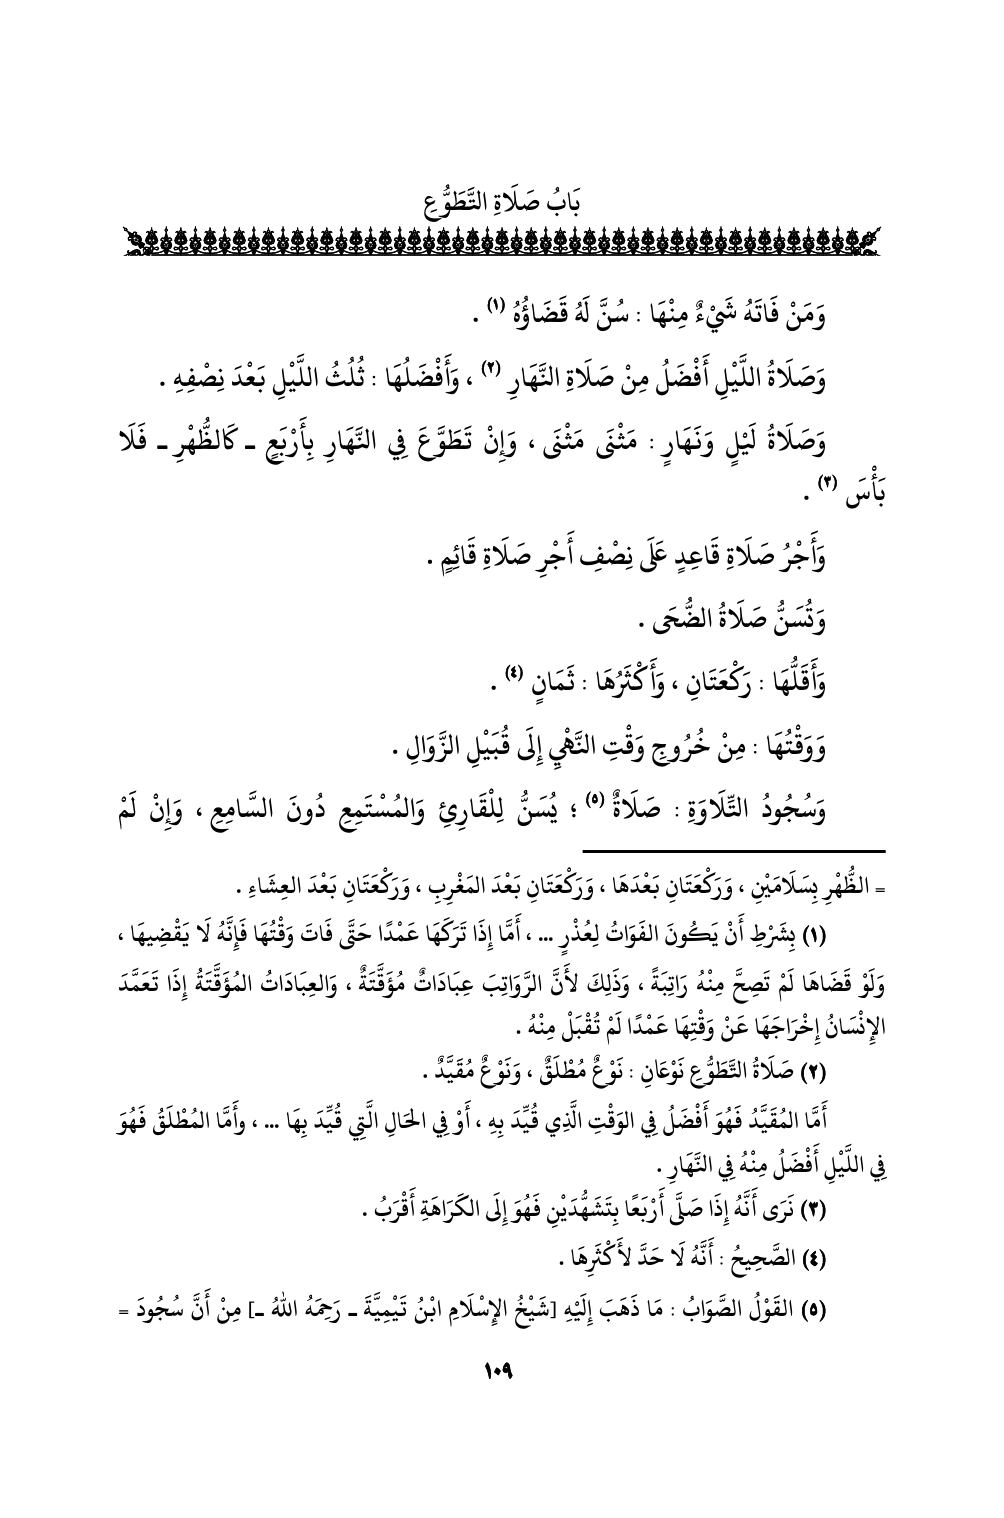 بَابُ صَلَاةِ التَّطَوُّعِ
وَمَنْ فَاتَهُ شَيْءٌ مِنْهَا : سُنَّ لَهُ قَضَاؤُهُ (١) .
وَصَلَاةُ اللَّيْلِ أَفْضَلُ مِنْ صَلَاةِ النَّهَارِ (٢) ، وَأَفْضَلُهَا : ثُلُثُ اللَّيْلِ بَعْدَ نِصْفِهِ .
وَصَلَاةُ لَيْلٍ وَنَهَارٍ : مَثْنَى مَثْنَى ، وَإِنْ تَطَوَّعَ فِي النَّهَارِ بِأَرْبَعٍ ـ كَالظُّهْرِ ـ فَلَا
بَأْسَ (٣) .
وَأَجْرُ صَلَاةِ قَاعِدٍ عَلَى نِصْفِ أَجْرِ صَلَاةِ قَائِمٍ .
وَتُسَنُّ صَلَاةُ الضُّحَى .
وَأَقَلُّهَا : رَكْعَتَانِ ، وَأَكْثَرُهَا : ثَمَانٍ (٤) .
وَوَقْتُهَا : مِنْ خُرُوجِ وَقْتِ النَّهْيِ إِلَى قُبَيْلِ الزَّوَالِ .
وَسُجُودُ التِّلَاوَةِ : صَلَاةٌ (٥) ؛ يُسَنُّ لِلْقَارِئِ وَالمُسْتَمِعِ دُونَ السَّامِعِ ، وَإِنْ لَمْ
= الظُّهْرِ بِسَلَامَيْنِ ، وَرَكْعَتَانِ بَعْدَهَا ، وَرَكْعَتَانِ بَعْدَ المَغْرِبِ ، وَرَكْعَتَانِ بَعْدَ العِشَاءِ .
(١) بِشَرْطِ أَنْ يَكُونَ الفَوَاتُ لِعُذْرٍ ... ، أَمَّا إِذَا تَرَكَهَا عَمْدًا حَتَّى فَاتَ وَقْتُهَا فَإِنَّهُ لَا يَقْضِيهَا ،
وَلَوْ قَضَاهَا لَمْ تَصِحَّ مِنْهُ رَاتِبَةً ، وَذَلِكَ لأَنَّ الرَّوَاتِبَ عِبَادَاتٌ مُؤَقَّتَةٌ ، وَالعِبَادَاتُ المُؤَقَّتَةُ إِذَا تَعَمَّدَ
الإِنْسَانُ إِخْرَاجَهَا عَنْ وَقْتِهَا عَمْدًا لَمْ تُقْبَلْ مِنْهُ .
(٢) صَلَاةُ التَّطَوُّعِ نَوْعَانِ : نَوْعٌ مُطْلَقٌ ، وَنَوْعٌ مُقَيَّدٌ .
أَمَّا المُقَيَّدُ فَهُوَ أَفْضَلُ فِي الوَقْتِ الَّذِي قُيِّدَ بِهِ ، أَوْ فِي الحَالِ الَّتِي قُيِّدَ بِهَا ... ، وأَمَّا المُطْلَقُ فَهُوَ
فِي اللَّيْلِ أَفْضَلُ مِنْهُ فِي النَّهَارِ .
(٣) نَرَى أَنَّهُ إِذَا صَلَّى أَرْبَعًا بِتَشَهُّدَيْنِ فَهُوَ إِلَى الكَرَاهَةِ أَقْرَبُ .
(٤) الصَّحِيحُ : أَنَّهُ لَا حَدَّ لأَكْثَرِهَا .
(٥) القَوْلُ الصَّوَابُ : مَا ذَهَبَ إِلَيْهِ [شَيْخُ الإِسْلَامِ ابْنُ تَيْمِيَّةَ ـ رَحِمَهُ اللهُ ـ] مِنْ أَنَّ سُجُودَ =
١٠٩